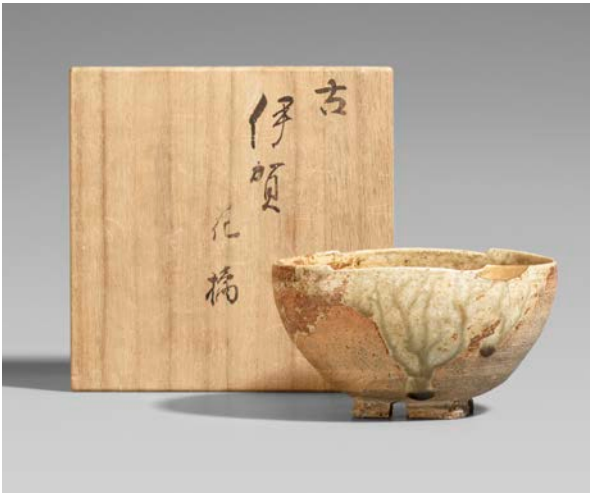 古
伊賀
花橘